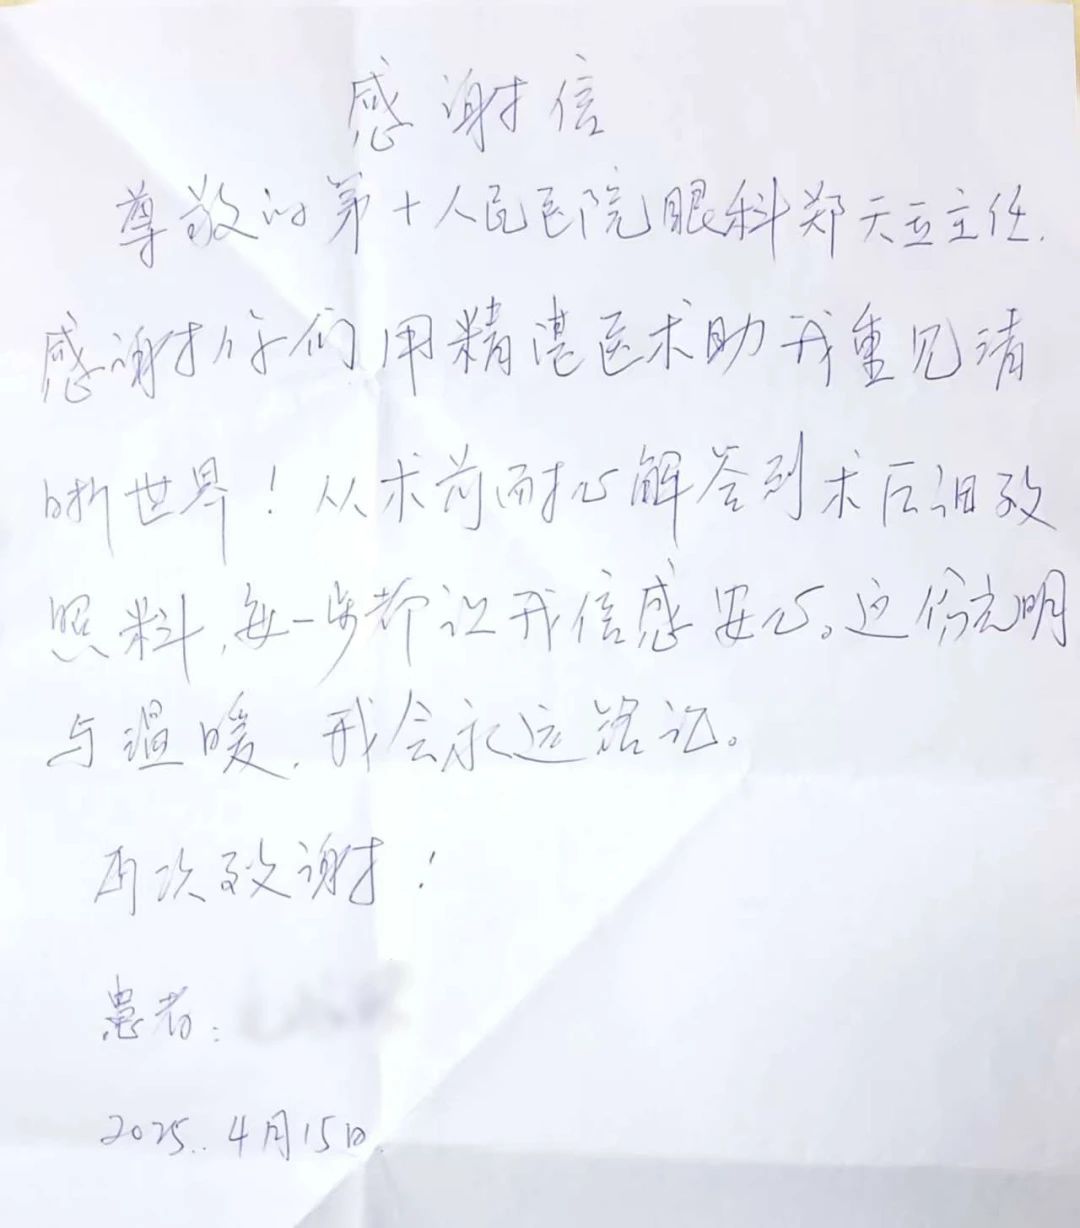 感谢信
尊敬的第十人民医院眼科郑天立主任.
感谢你们用精湛医术助我重见清
晰世界！从术前耐心解答到术后细致
照料,每一步都让我倍感安心。这份光明
与温暖,我会永远铭记。
再次致谢！
患者:
2025.4月15日.